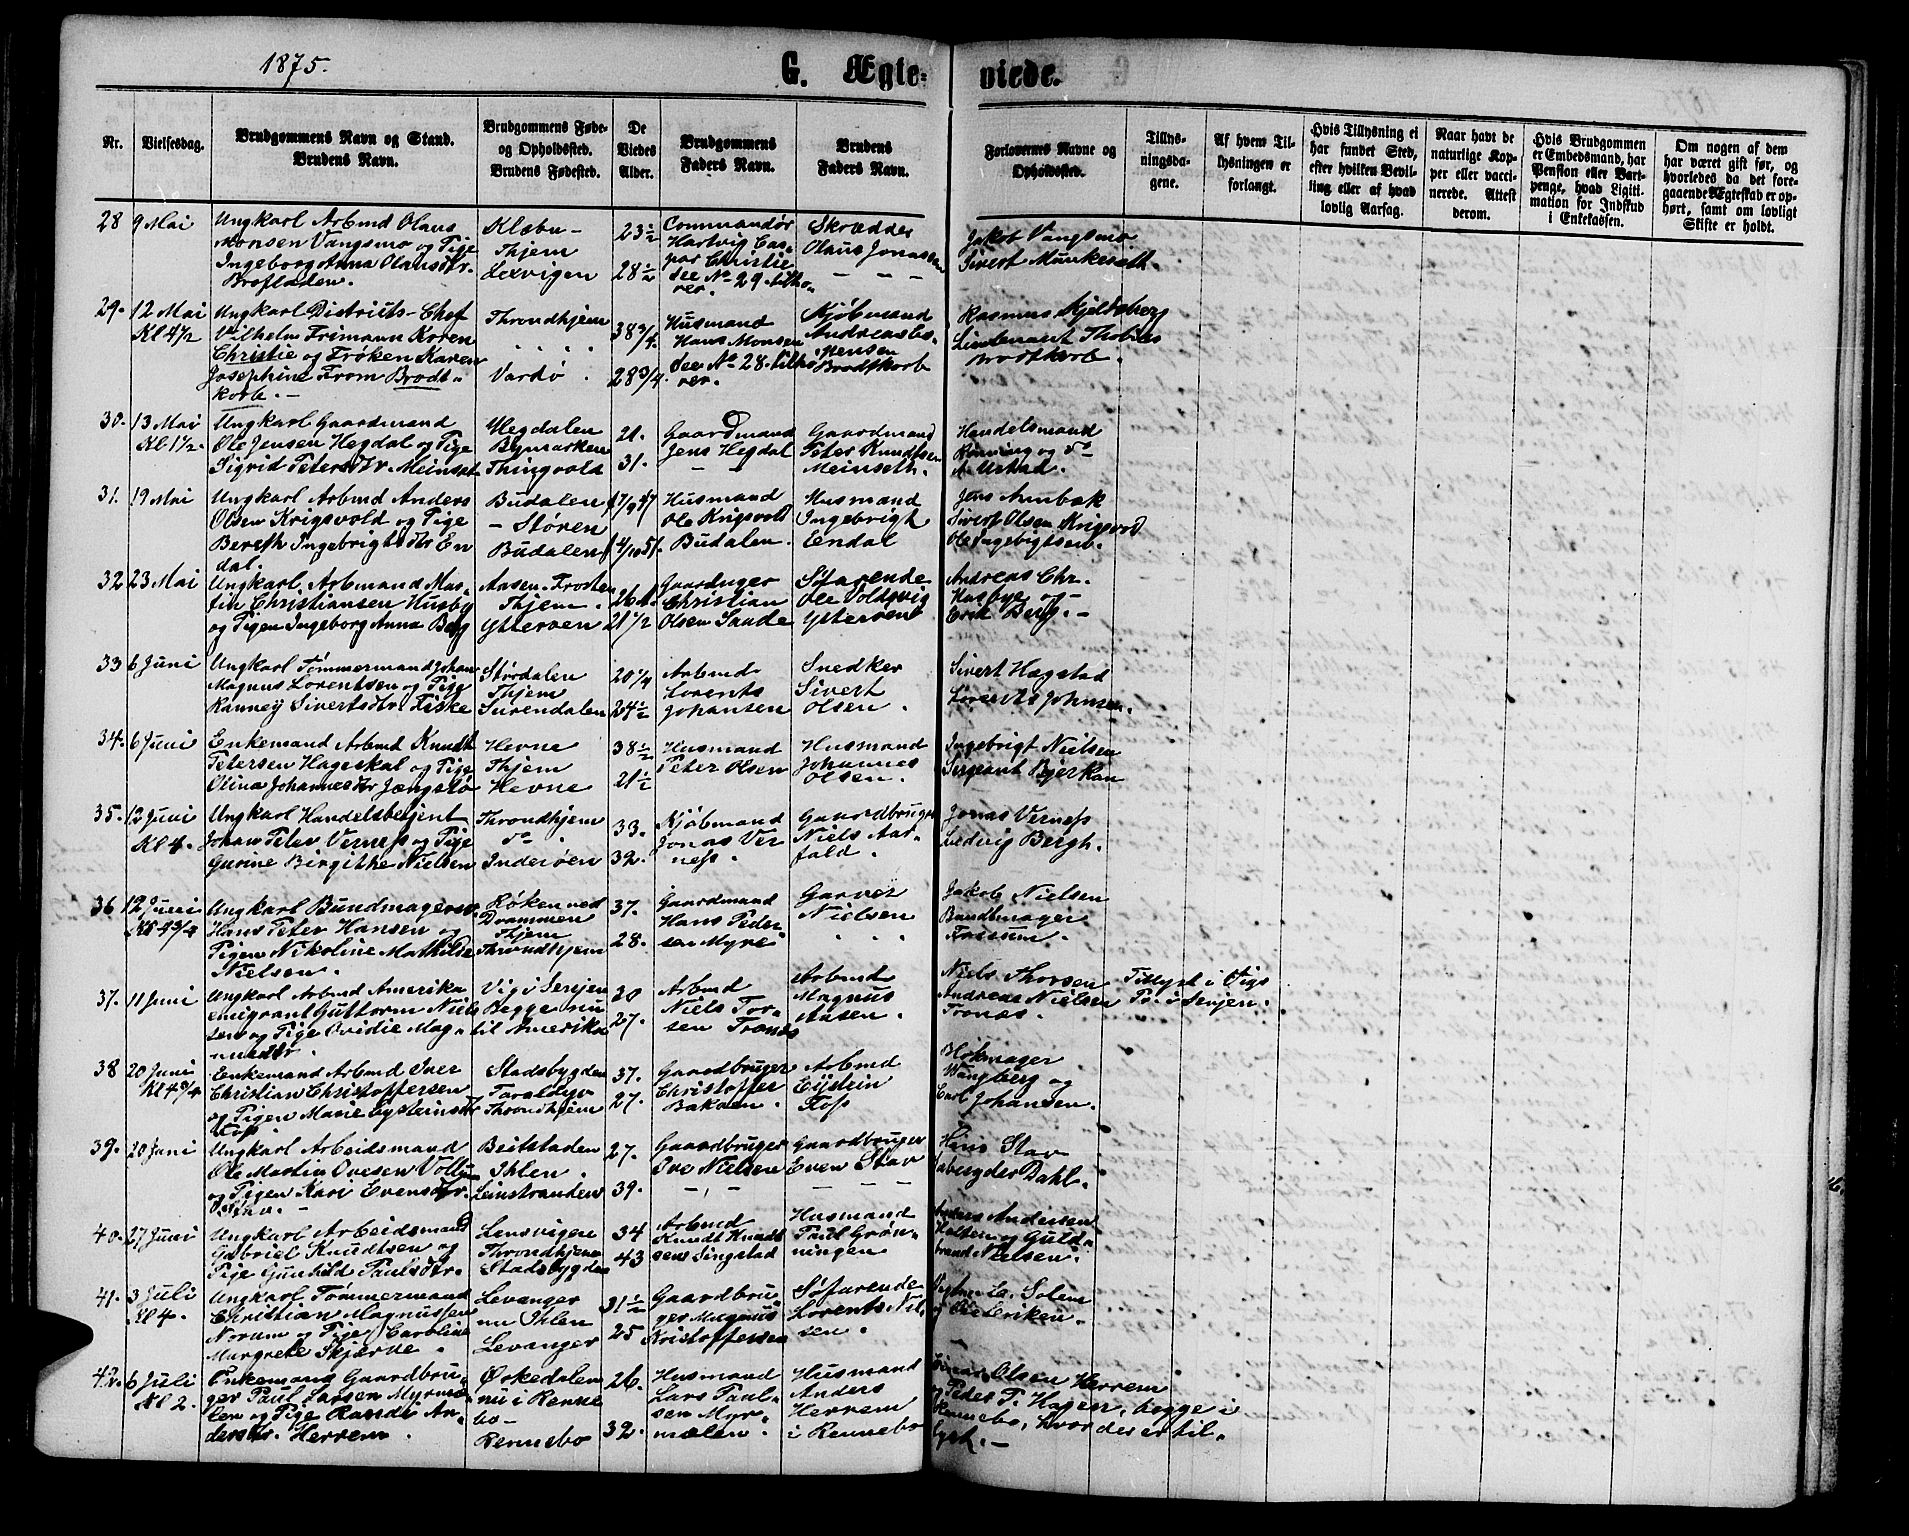 1875.
G. Ægte-
viede.
Nr.
Vielsesdag.
Brudgommens Navn og Stand.
Brudens Navn.
Brudgommens Føde-
og Opholdssted.
Brudens Fødested.
De
Viedes
Alder.
Brudgommens
Faders Navn.
Brudens
Faders Navn.
Forlovernes Navne og
Opholdssted.
Tillys-
ningsda-
gene.
Af hvem Til-
lysningen er
forlangt.
Hvis Tillysning ei
har fundet Sted,
efter hvilken Bevil-
ling eller af hvad
lovlig Aarsag.
Naar havt de
naturlige Kop-
per eller vacci-
nerede. Attest
derom.
Hvis Brudgommen
er Embedsmand, har
Pension eller Vart-
penge, hvad Ligiti-
mation for Indskud
i Enkekassen.
Om nogen af dem
har været gift før, og
hvorledes da det fore-
gaaende Ægteskab er op-
hørt, samt om lovligt
Skifte er holdt.
28 9 Mai
Ungkarl Arbmd Olaus
Monsen Vangsmo og Pige
Ingeborg Anna Olausdtr.
Brofladen.
Klæbu -
Thjem
Lexvigen
23 1/2
28 1/2
Commandør
Hartvig Cas-
par Christie
see No 29 tilhø
rer.
Skrædder
Olaus Jonassen
Jakob Vangsmo
Sivert Munkeseth.
29. 12 Mai
Kl 4 1/2
Ungkarl Districts-Chef
Vilhelm Frimann Koren
Christie og Frøken Karen
Josephine From Brodt-
korb. -
Throndhjem
Vardø
38 3/4
28 3/4
Husmand
Hans Monsen
see No 28 tilhø
rer.
Kjøbmand
Andreas Es-
pensen
Brodtkorb
Rasmus Kjeldsberg
Lieutenant Thobias
Brodtkorb.
30. 13 Mai
Kl 1 1/2.
Ungkarl Gaardmand
Ole Jensen Hegdal og Pige
Sigrid Petersdtr. Meinset
Hegdalen
Bymarken
Thingvold
21.
31.
Gaardmand
Jens Hegdal
Gaardmand
Peter Knudtsen
Meinseth.
Handelsmand
Rønning og do
Urstad.
31. 19 Mai
Ungkarl Arbmd Anders
Olsen Krigsvold og Pige
Bereth Ingebrigtsdtr En
dal.
Budalen
- Støren
Budalen
17/9 47
4/10 51
Husmand
Ole Krigsvold
Budalen.
Husmand
Ingebrigt
Endal
Jens Armbak
Sivert Olsen Krigsvold
Ole Ingebrigtsen.
32 23 Mai
Ungkarl Arbmand Mar-
tin Christiansen Husby
og Pigen Ingeborg Anna Berg
Aasen-Frosten
Thjem.
Ytterøen
26
21 1/2
Gaardbruger
Christian
Olsen Sande
Søfarende
Ole Voldsvig
Ytterøen
Andreas Chr.
Husbye og -
Erik Berg. -
33 6 Juni
Ungkarl Tømmermand Johan
Magnus Lorentsen og Pige
Ranney Sivertsdtr Fiske
Størdalen
Thjem
Surendalen
20 1/4
24 1/2
Arbmd
Lorents
Johansen
Snedker
Sivert
Olsen.
Sivert Hagstad
Lorents Johnsen.
34. 6 Juni
Enkemand Arbmd Knudt
Petersen Hageskal og Pige
Olina Johannesdtr Jængstø
Hevne
Thjem
Hevne
38 1/2
21 1/2
Husmand
Peter Olsen
Husmand
Johannes
Olsen.
Ingebrigt Nielsen
Sergeant Bjerkan
35. 12 Juni
Kl 4.
Ungkarl Handelsbetjent
Johan Peter Verness og Pige
Gurine Birgithe Nielsen
Throndhjem
do.
Inderøen
33.
32.
Kjøbmand
Jonas Ver
ness.
Gaardbruger
Niels Aar-
fald.
Jonas Verness
Ludvig Bergh.
36 12 Juni
Kl 4 3/4
Ungkarl Bundmagersv.
Hans Peter Hansen og
Pigen Nikoline Mathilde
Nielsen.
Røken ved
Drammen
Thjem
Throndhjem
37.
28.
Gaardmand
Hans Peder-
sen Myre
Garver
Nielsen
Jakob Nielsen
Bundtmager
Fossum.
37. 11 Juni
Ungkarl Arbmd Amerika
emigrant Guttorm Niels
sen og Pige Ovidie Mag-
nusdtr.
Vig i Senjen
Begge nu
til Amerika
20
27.
Arbmd
Niels Tor-
sen Tronæs
Arbmd
Magnus
Aasen.
Niels Thorsen
Andreas Nielsen
Tronæs.
Tillyst i Vigs
Pr. i Senjen.
38 20 Juni
Kl 4 3/4
Enkemand Arbmd Iver
Christian Christoffersen
og Pigen Marie Eysteinsdtr
Foss.
Stadsbygden
Throndhjem
37.
27.
Gaardbruger
Christoffer
Bakaen.
Arbmd
Eystein
Foss
Blokmager
Wangberg og
Carl Johansen.
39. 20 Juni
Ungkarl Arbeidsmand
Ole Martin Ovesen Vollu
og Pigen Kari Evensdtr.
Stav. -
Beitstaden
Ihlen.
Leinstranden
27.
39.
Gaardbruger
Ove Nielsen
Gaardbruger
Even Stav
Hans Stav
Dahl.
40. 27 Juni
Ungkarl Arbeidsmand
Gabriel Knudtsen og
Pige Gunhild Paulsdtr.
Lensvigen
Throndhjem
Stadsbygden
34
43
Arbmd
Knudt Knudt
sen Singstad
Husmand
Paul Grøn-
ningen
Anders Andersen
Holten og Guld-
brand Nielsen.
41. 3 Juli
Kl 4.
Ungkarl Tømmermand
Christian Magnussen
Norum og Pige Caroline
Margrete Skjerve.
Levanger
nu Ihlen
Levanger
31 1/2
25
Gaardbru-
ger Magnus
Kristoffersen
Søfarende
Lorents Nil-
sen.
Solem
og Diderikren.
42. 6 Juli
Kl 2.
Enkemand Gaardbru-
ger Paul Larsen Myrmæ-
len og Pige Randi An-
dersdtr. Herrem.
Ørkedalen
nu i Renne
bo -
Rennebo
26.
32.
Husmand
Lars Paul-
sen Myr-
mælen.
Husmand
Anders
Herrem
i Rennebo
Einar Olsen Herrem
og Peder T. Hagen, begge i
Rennebo, hvor der er til-
lyst. -